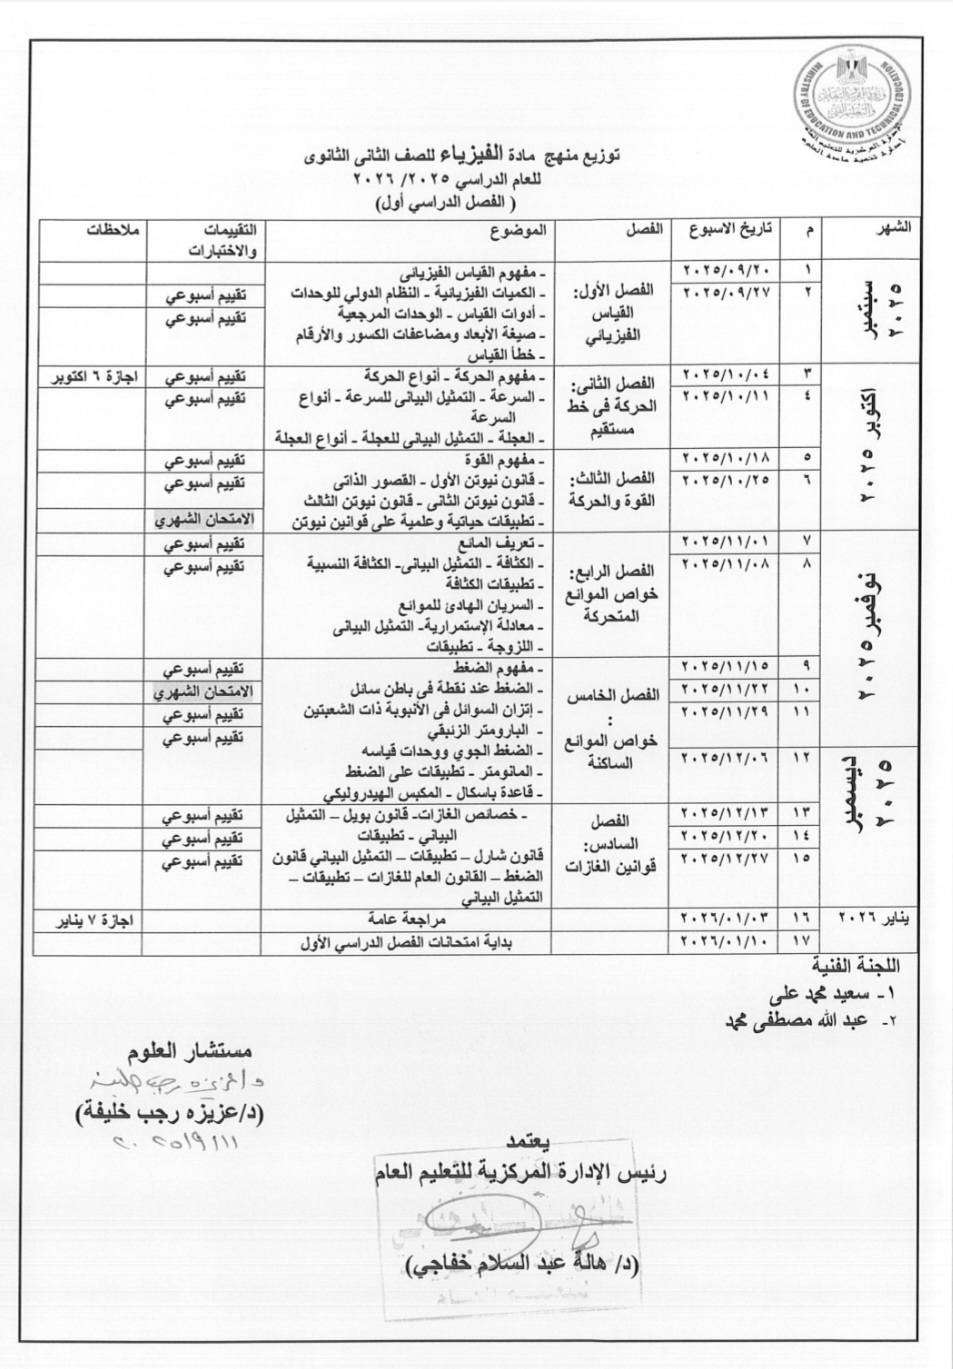 MINISTRY OF EDUCATION AND TECHNICAL EDUCATION
توزيع منهج مادة الفيزياء للصف الثانى الثانوى
للعام الدراسي ٢٠٢٥/ ٢٠٢٦
( الفصل الدراسي أول)
الشهر م تاريخ الاسبوع الفصل الموضوع التقييمات والاختبارات ملاحظات
سبتمبر ٢٠٢٥
١ ٢٠٢٥/٠٩/٢٠
٢ ٢٠٢٥/٠٩/٢٧
الفصل الأول: القياس الفيزيائي
- مفهوم القياس الفيزيائى
- الكميات الفيزيائية - النظام الدولي للوحدات
- أدوات القياس - الوحدات المرجعية
- صيغة الأبعاد ومضاعفات الكسور والأرقام
- خطأ القياس
تقييم أسبوعي
تقييم أسبوعي
اكتوبر ٢٠٢٥
٣ ٢٠٢٥/١٠/٠٤
٤ ٢٠٢٥/١٠/١١
الفصل الثانى: الحركة فى خط مستقيم
- مفهوم الحركة - أنواع الحركة
- السرعة - التمثيل البيانى للسرعة - أنواع
السرعة
- العجلة - التمثيل البيانى للعجلة - أنواع العجلة
تقييم أسبوعي اجازة ٦ اكتوبر
تقييم أسبوعي
٥ ٢٠٢٥/١٠/١٨
٦ ٢٠٢٥/١٠/٢٥
الفصل الثالث: القوة والحركة
- مفهوم القوة
- قانون نيوتن الأول - القصور الذاتى
- قانون نيوتن الثانى - قانون نيوتن الثالث
- تطبيقات حياتية وعلمية على قوانين نيوتن
تقييم أسبوعي
تقييم أسبوعي
الامتحان الشهري
نوفمبر ٢٠٢٥
٧ ٢٠٢٥/١١/٠١
٨ ٢٠٢٥/١١/٠٨
الفصل الرابع: خواص الموائع المتحركة
- تعريف المائع
- الكثافة - التمثيل البيانى- الكثافة النسبية
- تطبيقات الكثافة
- السريان الهادئ للموائع
- معادلة الإستمرارية- التمثيل البيانى
- اللزوجة - تطبيقات
تقييم أسبوعي
تقييم أسبوعي
٩ ٢٠٢٥/١١/١٥
١٠ ٢٠٢٥/١١/٢٢
١١ ٢٠٢٥/١١/٢٩
ديسمبر ٢٠٢٥
١٢ ٢٠٢٥/١٢/٠٦
الفصل الخامس : خواص الموائع الساكنة
- مفهوم الضغط
- الضغط عند نقطة فى باطن سائل
- إتزان السوائل فى الأنبوبة ذات الشعبتين
- البارومتر الزئبقي
- الضغط الجوي ووحدات قياسه
- المانومتر - تطبيقات على الضغط
- قاعدة باسكال - المكبس الهيدروليكي
تقييم أسبوعي
الامتحان الشهري
تقييم أسبوعي
تقييم أسبوعي
١٣ ٢٠٢٥/١٢/١٣
١٤ ٢٠٢٥/١٢/٢٠
١٥ ٢٠٢٥/١٢/٢٧
الفصل السادس: قوانين الغازات
- خصائص الغازات- قانون بويل – التمثيل
البياني - تطبيقات
قانون شارل – تطبيقات – التمثيل البياني قانون
الضغط – القانون العام للغازات – تطبيقات –
التمثيل البياني
تقييم أسبوعي
تقييم أسبوعي
تقييم أسبوعي
يناير ٢٠٢٦ ١٦ ٢٠٢٦/٠١/٠٣ مراجعة عامة اجازة ٧ يناير
١٧ ٢٠٢٦/٠١/١٠ بداية امتحانات الفصل الدراسي الأول
اللجنة الفنية
١- سعيد محمد على
٢- عبد الله مصطفى محمد
مستشار العلوم
د/عزيزه رجب خليفة
(د/عزيزه رجب خليفة)
٢٠٢٥/٩/١١
يعتمد
رئيس الإدارة المركزية للتعليم العام
(د/ هالة عبد السلام خفاجي)